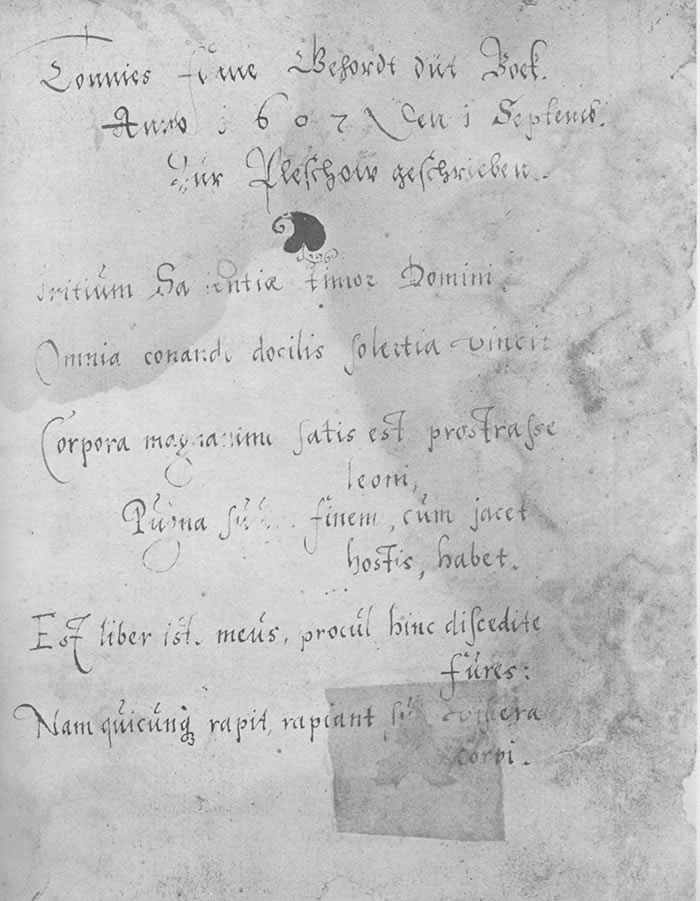 Tonnies fenne Gehordt düt Boek.
Anno 1607 Den 1 Septemb:
Zur Pleschow geschrieben.
Initium Sapientiæ timor Domini.
Omnia conando docilis solertia vincit
Corpora magnanimo satis est prostrasse
leoni,
Pugna suum finem, cum jacet
hostis, habet.
Est liber iste meus, procul hinc discedite
fures:
Nam quicunq; rapit, rapiant viscera
corvi.